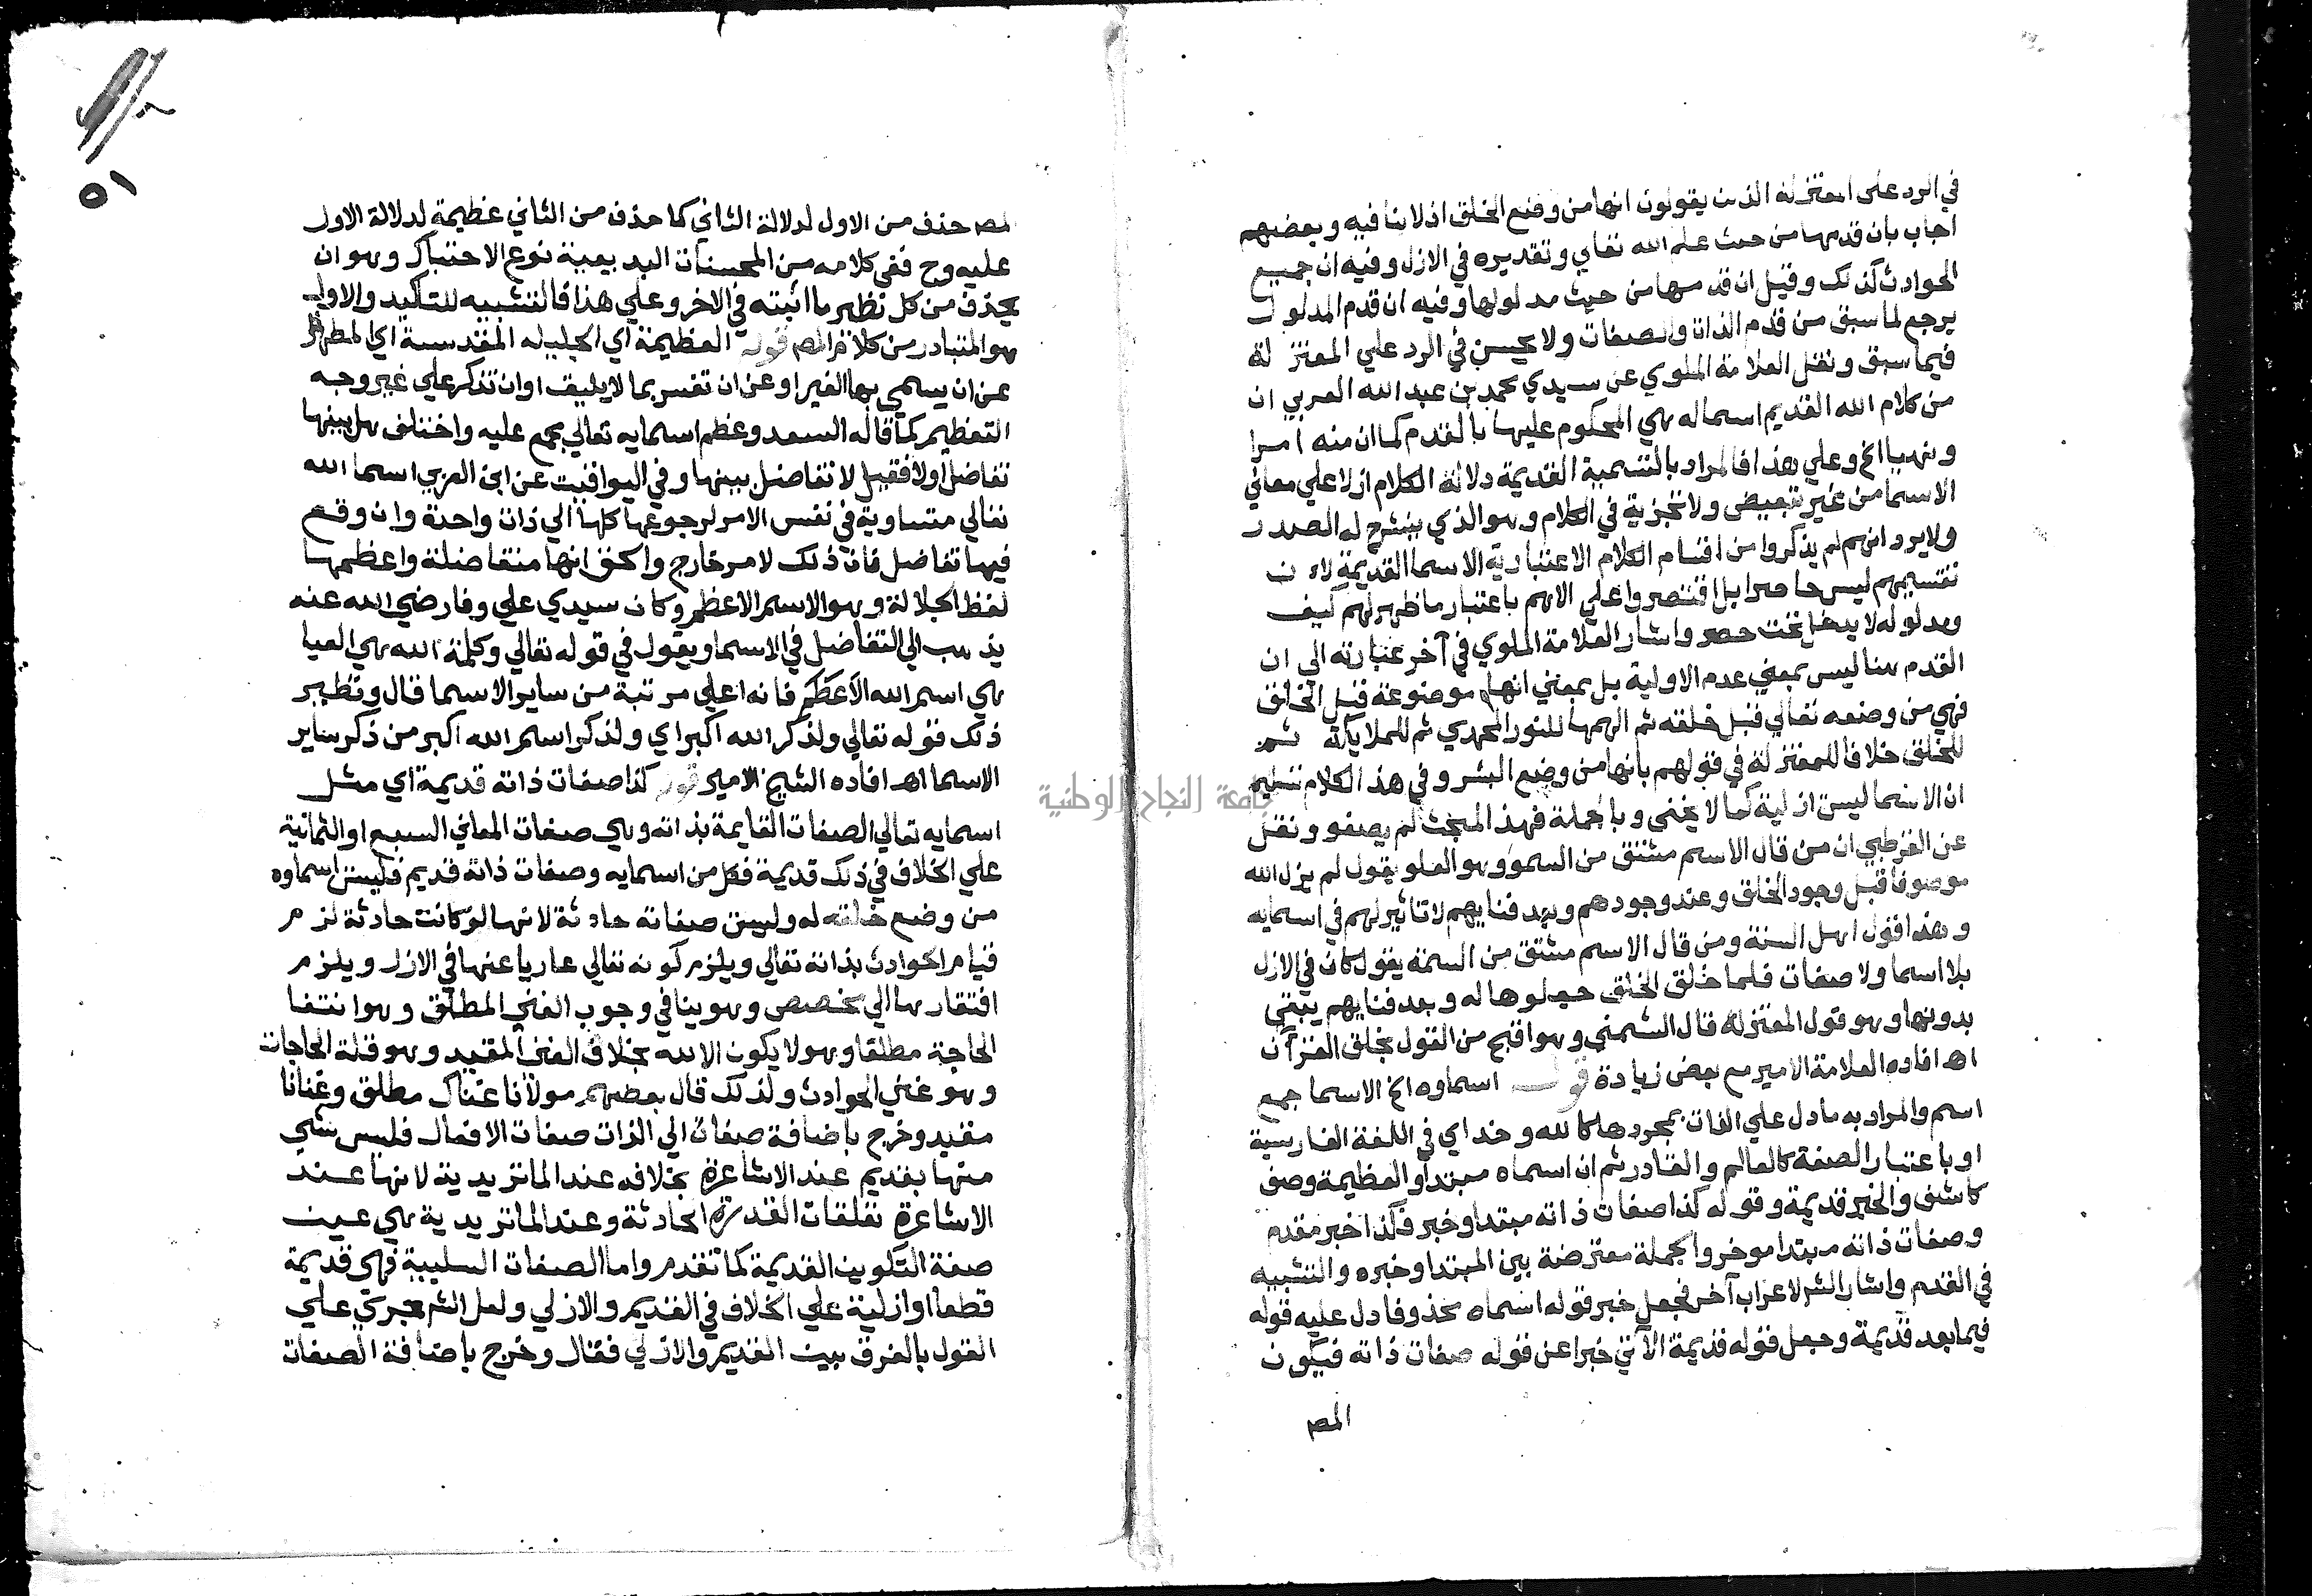 في الرد علي المعتزلة الذين يقولون انها من وضع الخلق اذ لا ينافيه وبعضهم
اجاب بان قدمها من حيث علم الله تعالي وتقديره في الازل وفيه ان جميع
الحوادث كذلك وقيل ان قدمها من حيث مدلولها وفيه ان قدم المدلول
يرجع لما سبق من قدم الذات والصفات ولا يحسن في الرد علي المعتزلة
فيما سبق ونقل العلامة الملوي عن سيدي محمد بن عبد الله العربي ان
من كلام الله القديم اسما له هي المحكوم عليها بالقدم كما ان منه امرا
ونهيا الخ وعلي هذا فالمراد بالتسمية القديمة دلالة الكلام ازلا علي معاني
الاسما من غير تبعيض ولا تجزية في الكلام وهو الذي ينشرح له الصدر
ولا يرد انهم لم يذكروا من اقسام الكلام الاعتبارية الاسما القديمة لان
تقسيمهم ليس حاصرا بل اقتصروا علي الاهم باعتبار ما ظهر لهم كيف
ومدلوله لا يدخل تحت حصر واشار العلامة الملوي في آخر عبارته الي ان
القدم هنا ليس بمعني عدم الاولية بل بمعني انها موضوعة قبل الخلق
فهي من وضعه تعالي قبل خلقه ثم الهمها للنور المحمدي ثم للملايكة ثم
للخلق خلافا للمعتزلة في قولهم بانها من وضع البشر وفي هذا الكلام تسليم
ان الاسما ليست ازلية كما لا يخفي وبالجملة فهذا المبحث لم يصفو ونقل
عن القرطبي ان من قال الاسم مشتق من السمو وهو العلو يقول لم يزل الله
موصوفا قبل وجود الخلق وعند وجودهم وبعد فنايهم لا تاثير لهم في اسمايه
وهذا قول اهل السنة ومن قال الاسم مشتق من السمة يقول كان في الازل
بلا اسما ولا صفات فلما خلق الخلق جعلوها له وبعد فنايهم يبقي
بدونها وهو قول المعتزلة قال الشمني وهو اقبح من القول بخلق القرآن
اهـ افاده العلامة الامير مع بعض زيادة قوله اسماوه الخ الاسما جمع
اسم والمراد به ما دل علي الذات بمجردها كالله وخداي في اللغة الفارسية
او باعتبار الصفة كالعالم والقادر ثم ان اسماه مبتدا والعظيمة وصف
كاشف والخبر قديمة وقوله كذا صفات ذاته مبتدا وخبر فكذا خبر مقدم
وصفات ذاته مبتدا موخر والجملة معترضة بين المبتدا وخبره والتشبيه
في القدم واشار الشر لاعراب آخر فجعل خبر قوله اسماه محذوفا دل عليه قوله
فيما بعد قديمة وجعل قوله قديمة الآتي خبرا عن قوله صفات ذاته فيكون
المصـ
٥١
المصـ حذف من الاول لدلالة الثاني كما حذف من الثاني عظيمة لدلالة الاول
عليه وح ففي كلامه من المحسنات البديعية نوع الاحتباك وهو ان
يحذف من كل نظير ما اثبته في الاخر وعلي هذا فالتشبيه للتاكيد والاول
هو المتبادر من كلام المصـ قوله العظيمة اي الجليله المقدسة اي المطهرة
عن ان يسمي بها الغير او عن ان تفسر بما لا يليق او ان تذكر علي غير وجه
التعظيم كما قاله السعد وعظم اسمايه تعالي مجمع عليه واختلف هل بينها
تفاضل اولا فقيل لا تفاضل بينها وفي اليواقيت عن ابن العربي اسما الله
تعالي متساوية في نفس الامر لرجوعها كلها الي ذات واحدة وان وقع
فيها تفاضل فان ذلك لامر خارج والحق انها متفاضلة واعظمها
لفظ الجلالة وهو الاسم الاعظم وكان سيدي علي وفا رضي الله عنه
يذهب الي التفاضل في الاسما ويقول في قوله تعالي وكلمة الله هي العليا
هي اسم الله الاعظم فانه اعلي مرتبة من ساير الاسما قال ونظير
ذلك قوله تعالي ولذكر الله اكبر اي ولذكر اسم الله اكبر من ذكر ساير
الاسما اهـ افاده الشيخ الامير قوله كذا صفات ذاته قديمة اي مثل
اسمايه تعالي الصفات القايمة بذاته وهي صفات المعاني السبع او الثمانية
علي الخلاف في ذلك قديمة فكل من اسمايه وصفات ذاته قديم فليس اسماوه
من وضع خلقه له وليست صفاته حادثة لانها لو كانت حادثة لزم
قيام الحوادث بذاته تعالي ويلزم كونه تعالي عاريا عنها في الازل ويلزم
افتقارها الي مخصص وهو ينافي وجوب الغني المطلق وهو انتفا
الحاجة مطلقا وهو لا يكون الا لله بخلاف الغني المقيد وهو قلة الحاجات
وهو غني الحوادث ولذلك قال بعضهم مولانا غناك مطلق وغنانا
مقيد وخرج باضافة صفات الي الذات صفات الافعال فليس شي
منها بقديم عند الاشاعرة بخلافه عند الماتريدية لانها عند
الاشاعرة تعلقات القدرة الحادثة وعند الماتريدية هي عين
صفة التكوين القديمة كما تقدم واما الصفات السلبية فهي قديمة
قطعا او ازلية علي الخلاف في القديم والازلي ولعل الشر جري علي
القول بالفرق بين القديم والازلي فقال وخرج باضافة الصفات
جامعة النجاح الوطنية